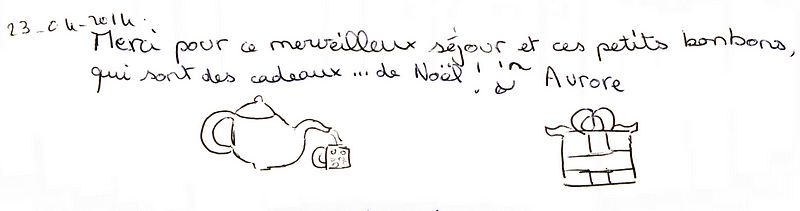 23-04-2014.
Merci pour ce merveilleux séjour et ces petits bonbons,
qui sont des cadeaux... de Noël! Aurore